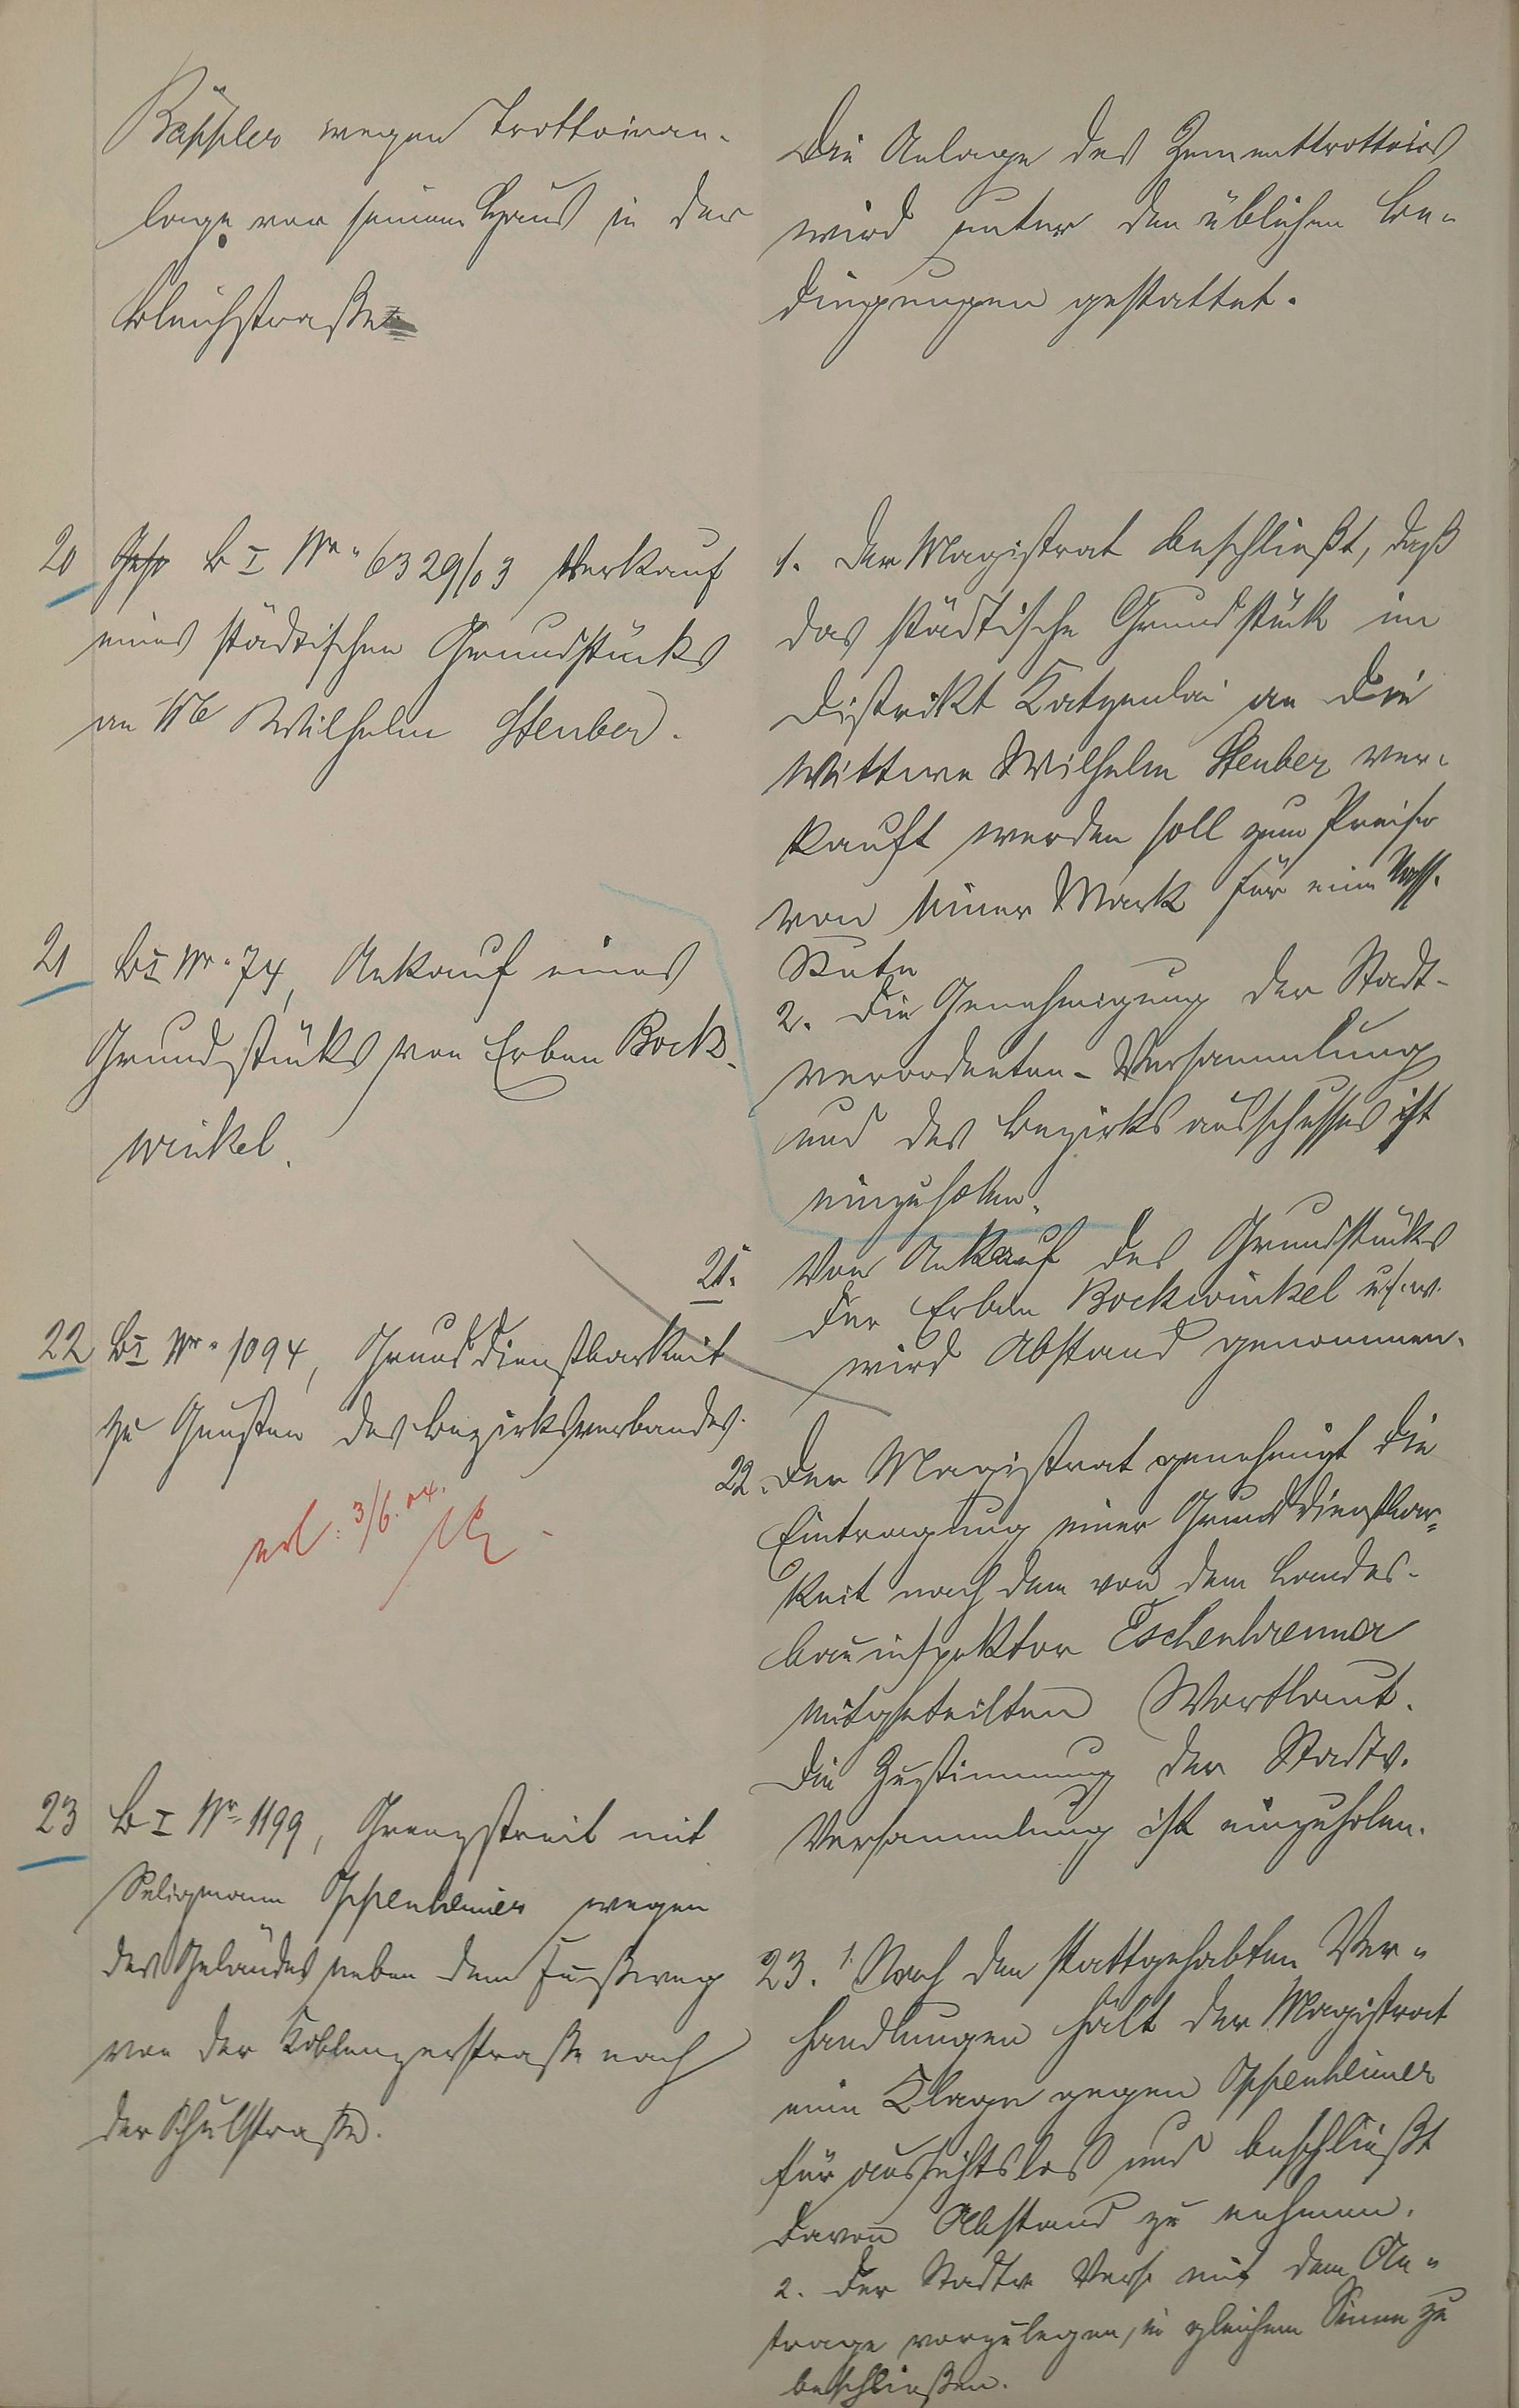 Bäppler wegen Trottoiran-
lage vor seinem Haus in der
Bleichstraße
Die Anlage des Zementtrottoirs
wird unter den üblichen Be-
dingungen gestattet.
20 B I Nr. 6329/03 Verkauf
eines städtischen Grundstücks
an Ww Wilhelm Steuber.
1. Der Magistrat beschließt, daß
das städtische Grundstück im
Distrikt Katzenlai an die
Wittwe Wilhelm Steuber ver-
kauft werden soll zum Preise
von einer Mark für eine Nass.
Rute
2. Die Genehmigung der Stadt-
verordneten-Versammlung
und des Bezirksausschusses ist
einzuholen.
21 B I Nr. 74, Ankauf eines
Grundstücks von Erben Bock-
winkel.
21. Von Ankauf des Grundstücks
der Erben Bockwinkel u.s.w.
wird Abstand genommen.
22 B I Nr. 1094, Grunddienstbarkeit
zu Gunsten des Bezirksverbandes.
erl: 3/6.04.
22. Der Magistrat genehmigt die
Eintragung einer Grunddienstbar-
keit nach dem von dem Landes-
bauinspektor Eschenbrenner
mitgeteilten Wortlaut.
Die Zustimmung der Stadtv.
Versammlung ist einzuholen.
23 B I Nr. 1199, Grenzstreit mit
Seligmann Oppenheimer wegen
des Geländes neben dem Fußweg
von der Koblenzerstraße nach
der Schulstraße.
23. 1. Nach den stattgehabten Ver-
handlungen hält der Magistrat
eine Klage gegen Oppenheimer
für aussichtslos und beschließt
davon Abstand zu nehmen.
2. Der Stadtv Vers mit dem An-
trage vorzulegen, in gleichem Sinne zu
beschließen.